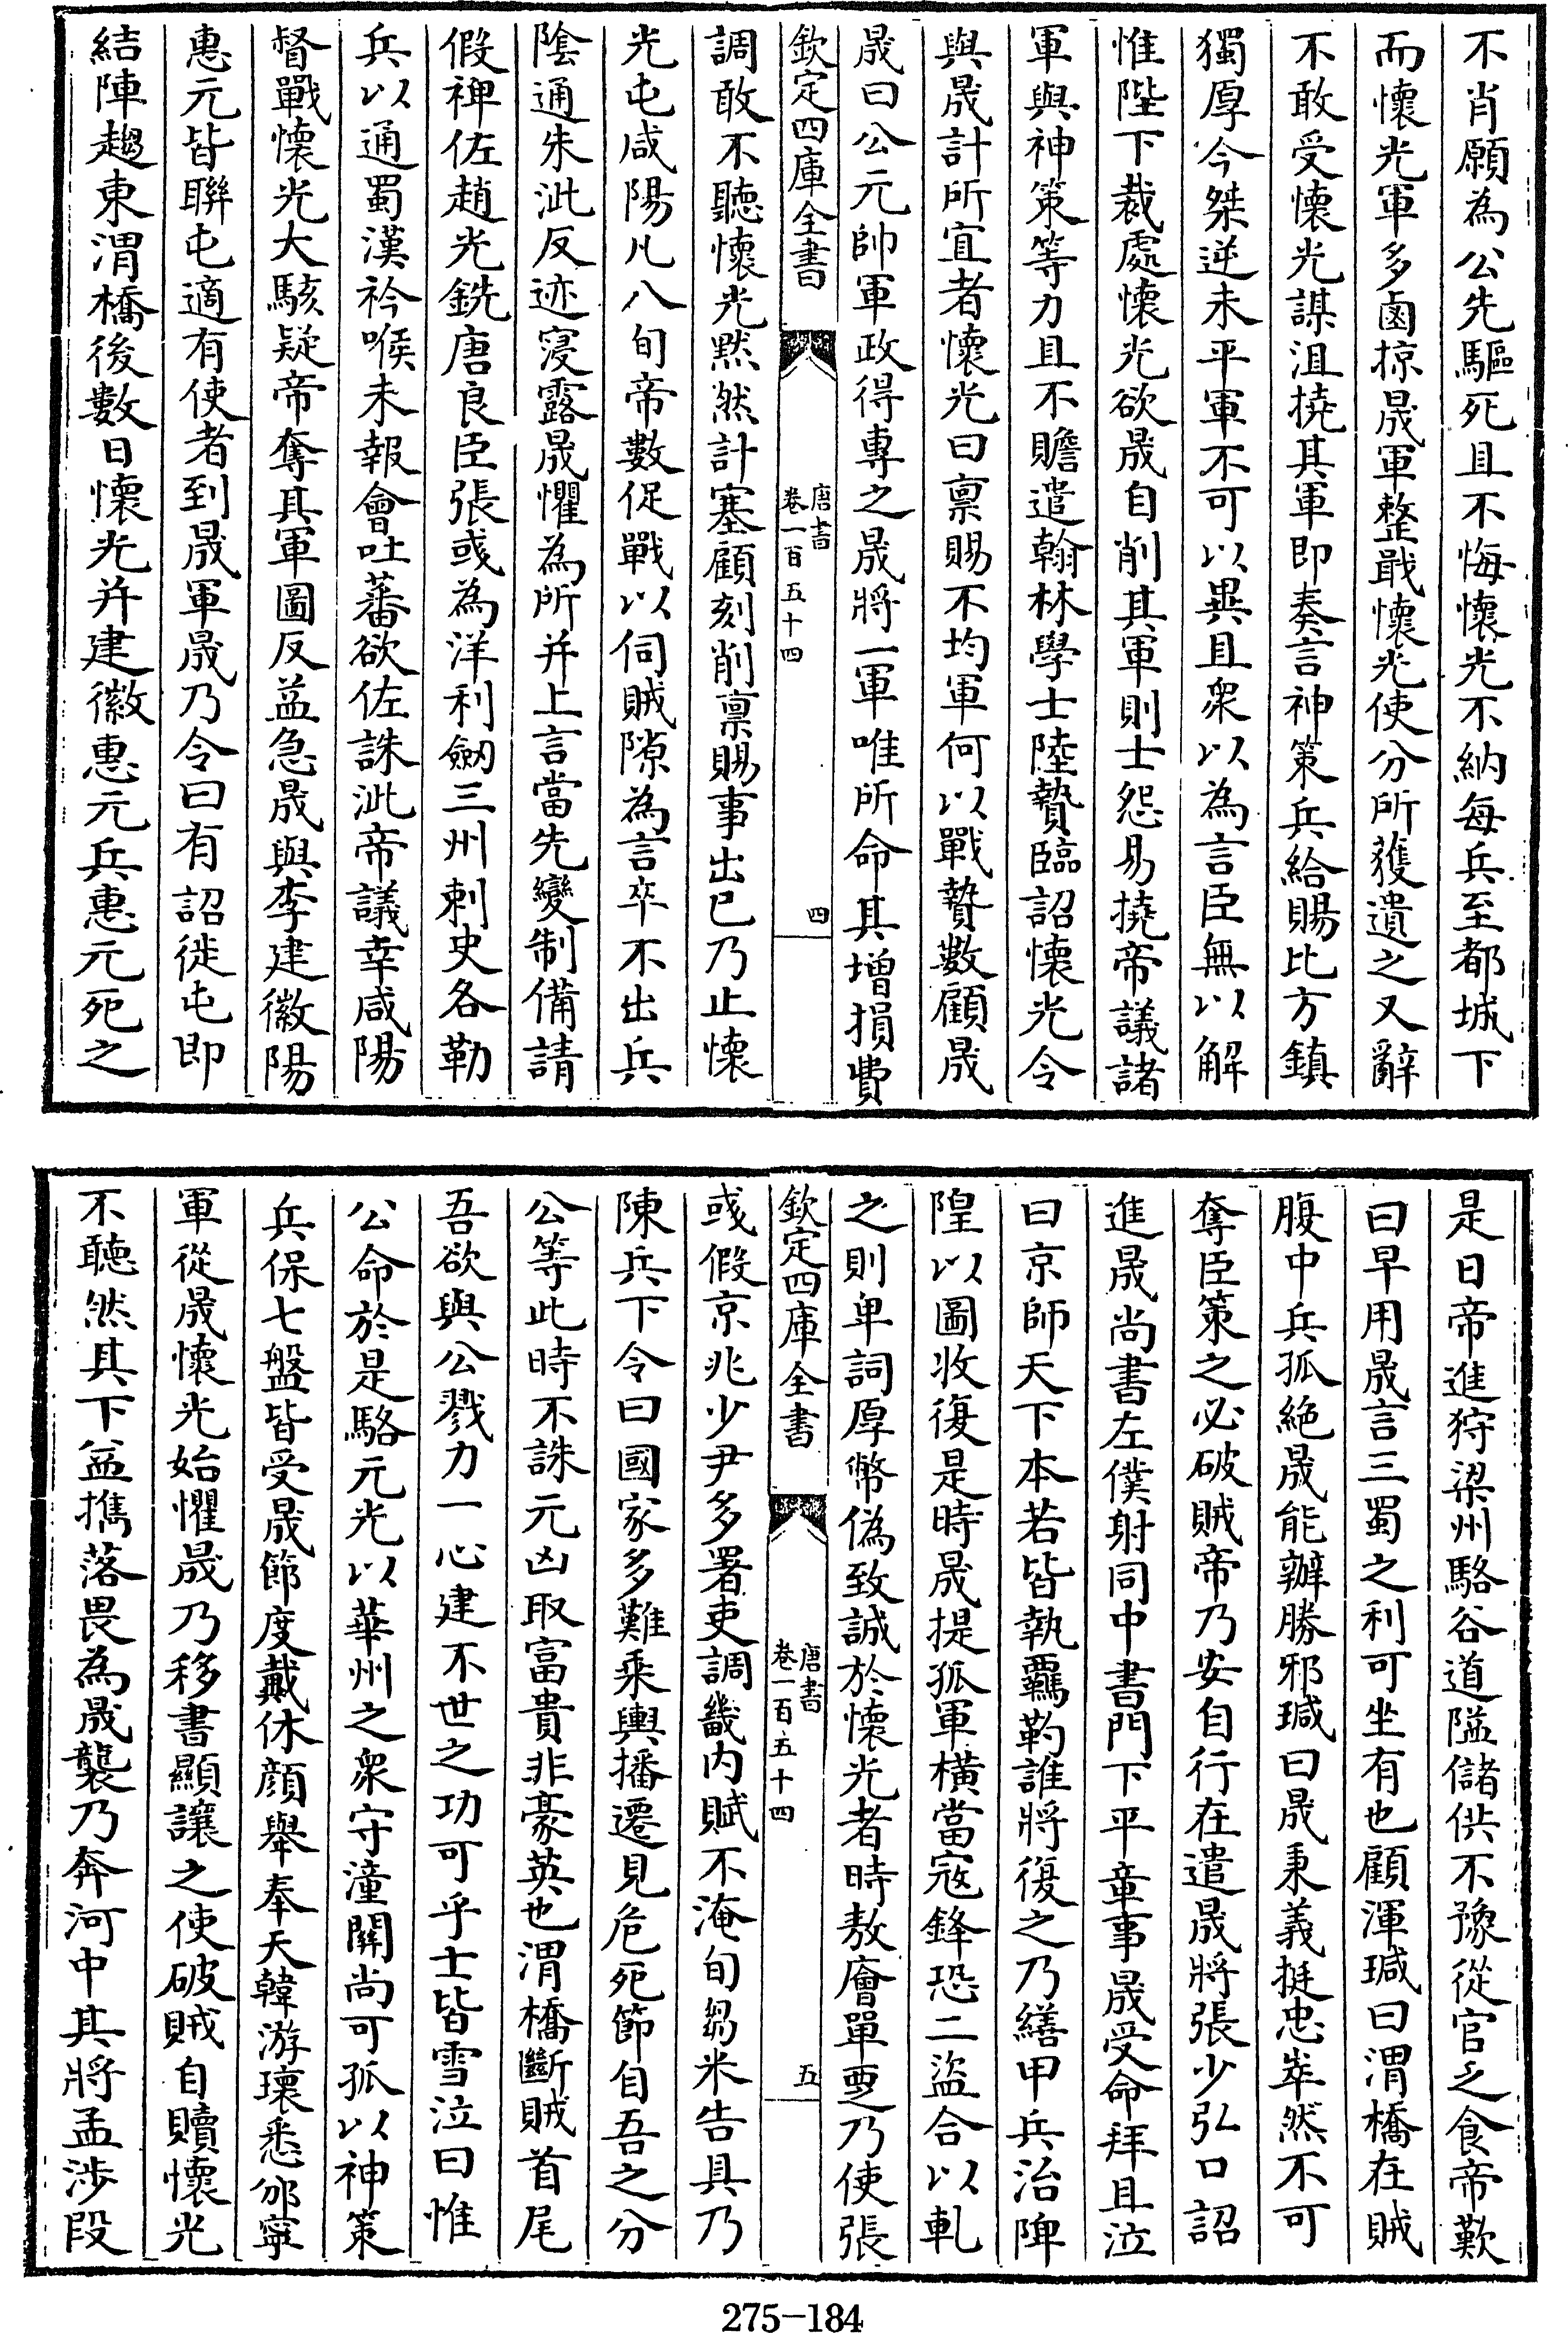 不肖願為公先驅死且不悔懷光不納每兵至都城下
而懷光軍多鹵掠晟軍整戢懷光使分所獲遺之又辭
不敢受懷光謀沮撓其軍即奏言神策兵給賜比方鎮
獨厚今桀逆未平軍不可以異且衆以為言臣無以解
惟陛下裁處懷光欲晟自削其軍則士怨易撓帝議諸
軍與神策等力且不贍遣翰林學士陸贄臨詔懷光令
與晟計所宜者懷光曰稟賜不均軍何以戰贄數顧晟
晟曰公元帥軍政得專之晟將一軍唯所命其增損費
欽定四庫全書
唐書
卷一百五十四
四
調敢不聽懷光黙然計塞顧刻削稟賜事出已乃止懷
光屯咸陽凡八旬帝數促戰以伺賊隙為言卒不出兵
陰通朱泚反迹寖露晟懼為所并上言當先變制備請
假裨佐趙光銑唐良臣張彧為洋利劒三州刺史各勒
兵以通蜀漢衿喉未報會吐蕃欲佐誅泚帝議幸咸陽
督戰懷光大駭疑帝奪其軍圖反益急晟與李建徽陽
惠元皆聯屯適有使者到晟軍晟乃令曰有詔徙屯即
結陣趨東渭橋後數日懷光并建徽惠元兵惠元死之
是日帝進狩梁州駱谷道隘儲供不豫從官乏食帝歎
曰早用晟言三蜀之利可坐有也顧渾瑊曰渭橋在賊
腹中兵孤絶晟能辦勝邪瑊曰晟秉義挺忠崒然不可
奪臣策之必破賊帝乃安自行在遣晟將張少弘口詔
進晟尚書左僕射同中書門下平章事晟受命拜且泣
曰京師天下本若皆執羈靮誰將復之乃繕甲兵治陴
隍以圖收復是時晟提孤軍橫當宼鋒恐二盜合以軋
之則卑詞厚幣偽致誠於懷光者時敖廥單匱乃使張
欽定四庫全書
唐書
卷一百五十四
五
彧假京兆少尹多署吏調畿内賦不淹旬芻米告具乃
陳兵下令曰國家多難乘輿播遷見危死節自吾之分
公等此時不誅元凶取富貴非豪英也渭橋斷賊首尾
吾欲與公戮力一心建不世之功可乎士皆雪泣曰惟
公命於是駱元光以華州之衆守潼關尚可孤以神策
兵保七盤皆受晟節度戴休顏舉奉天韓游瓌悉邠寧
軍從晟懷光始懼晟乃移書顯讓之使破賊自贖懷光
不聽然其下益攜落畏為晟襲乃奔河中其將孟涉段
275-184